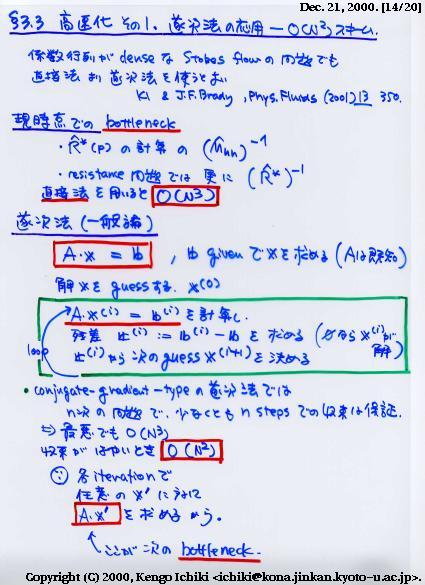 Dec. 21, 2000. [14/20]
§3.3 高速化 その1. 逐次法の応用 — O(N²)スキーム.
係数行列が dense な Stokes flow の問題でも
直接法より逐次法を使うとよい
Ki & J.F. Brady, Phys. Fluids (2001) 13 350.
現時点での bottleneck
・R̂*(P) の計算の (M̂nn)⁻¹
・resistance 問題では 更に (R̂*)⁻¹
直接法を用いると O(N³)
逐次法 (一般論)
A・x = b , b given で x を求める (Aは既知)
解 x を guess する. x⁽⁰⁾
A・x⁽ⁱ⁾ = b⁽ⁱ⁾ を計算し.
残差 r⁽ⁱ⁾ := b⁽ⁱ⁾ - b を求める (0なら x⁽ⁱ⁾が解)
r⁽ⁱ⁾から次の guess x⁽ⁱ⁺¹⁾ を決める
loop
・conjugate-gradient-type の逐次法では
n次の問題で, 少なくとも n steps での収束は保証.
⇒ 最悪でも O(N³)
収束がはやいとき O(N²)
∵ 各 iteration で
任意の x' に対して
A・x' を求めるから.
ここが次の bottleneck.
Copyright (C) 2000, Kengo Ichiki <ichiki@kona.jinkan.kyoto-u.ac.jp>.